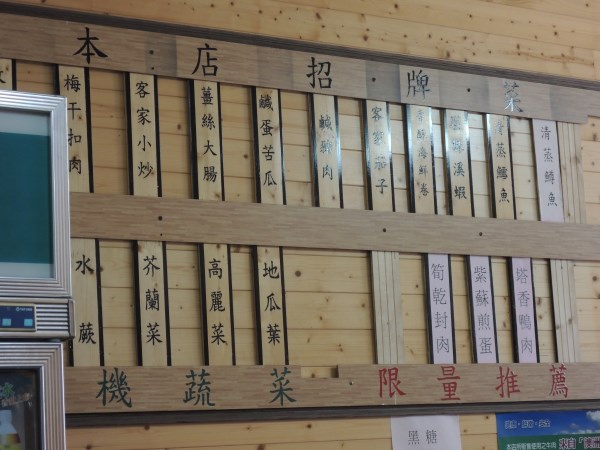 本店招牌菜
梅干扣肉
客家小炒
薑絲大腸
鹹蛋苦瓜
鹹豬肉
客家茄子
酥海鮮卷
溪蝦
清蒸鱈魚
清蒸鱒魚
水蕨
芥蘭菜
高麗菜
地瓜葉
筍乾封肉
紫蘇煎蛋
塔香鴨肉
機蔬菜
限量推薦
黑糖
來自